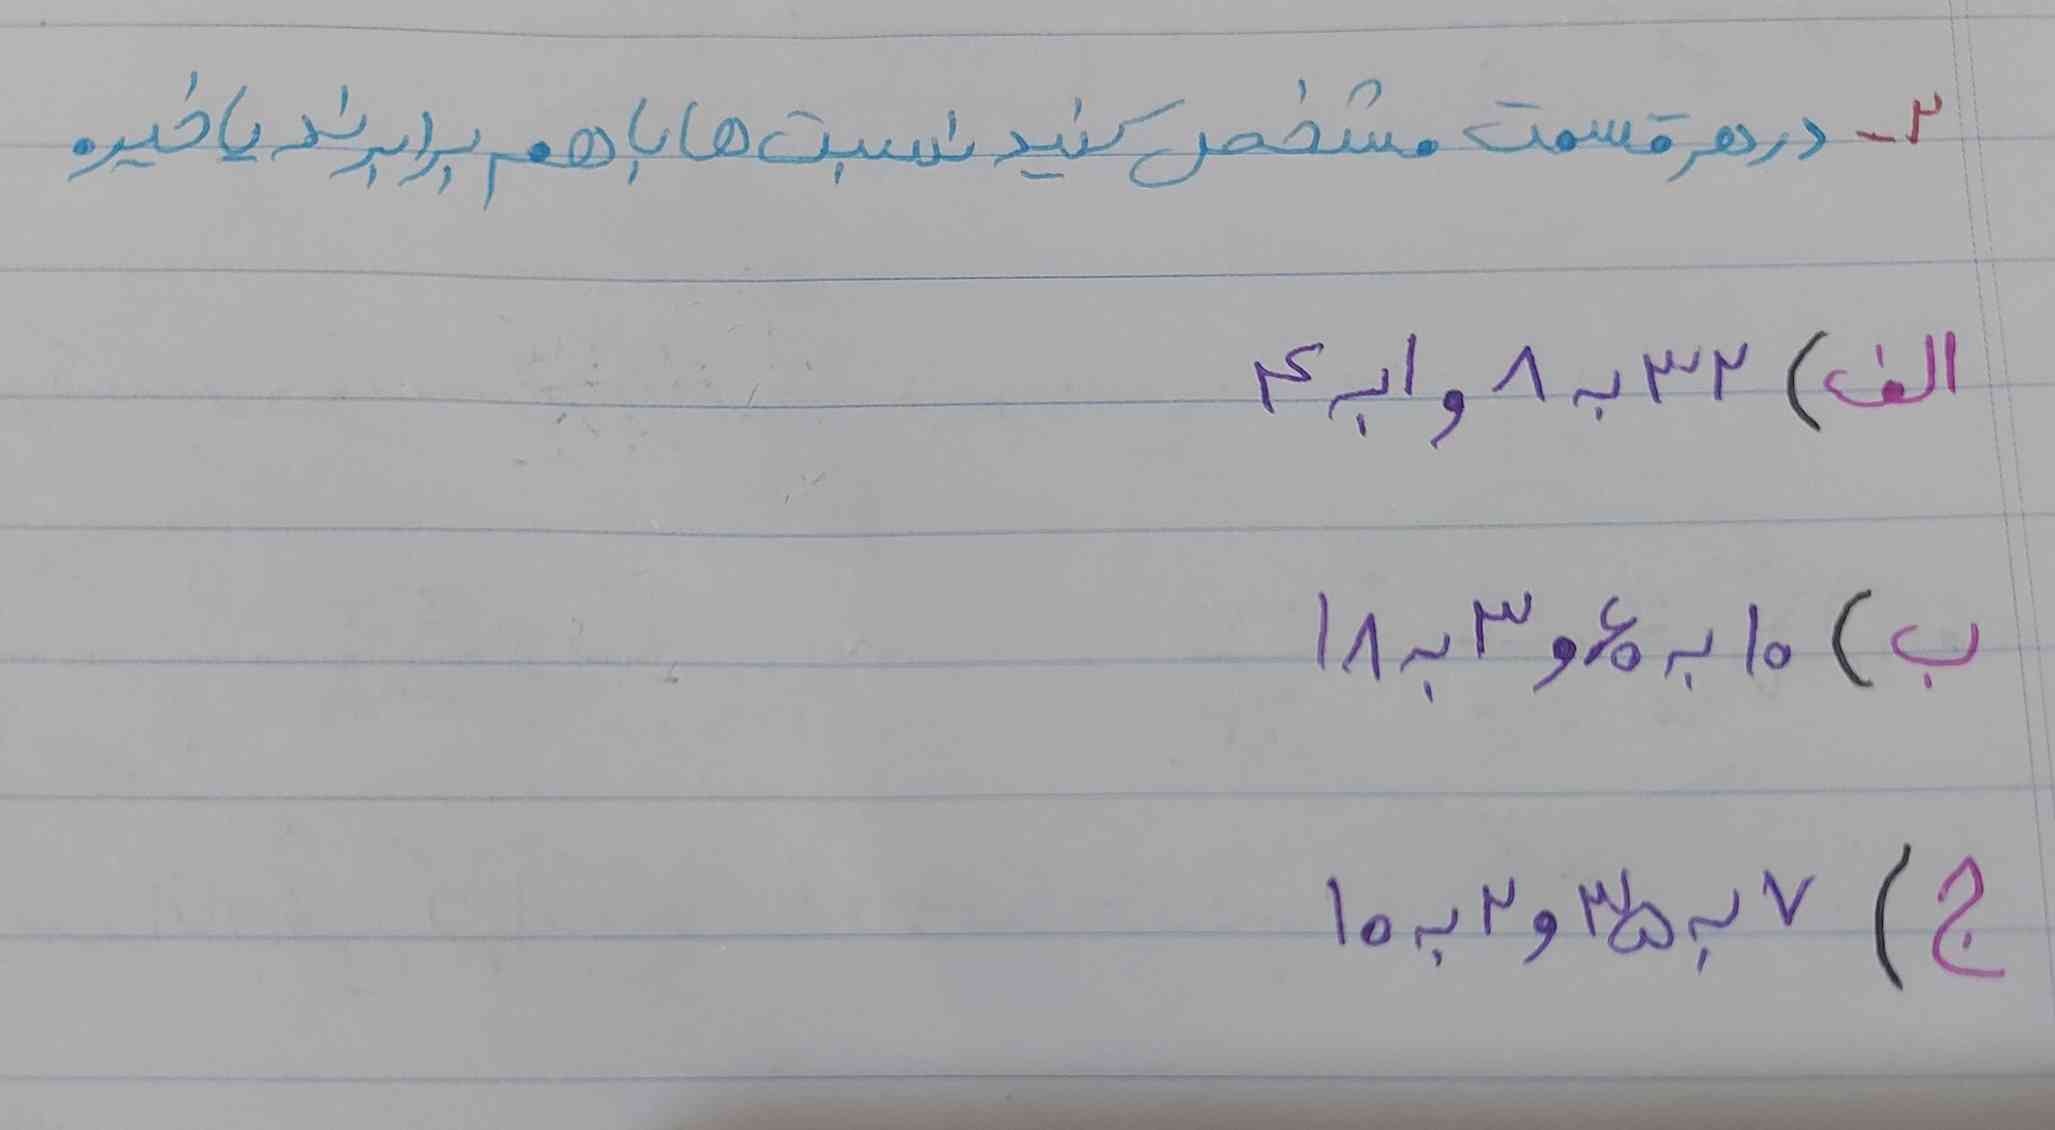 ۲- در هر قسمت مشخص کنید نسبت ها با هم برابرند یا خیر.
الف) ۳۲ به ۸ و ۱ به ۴
ب) ۱۰ به ۶۰ و ۳ به ۱۸
ج) ۷ به ۳۵ و ۲ به ۱۰